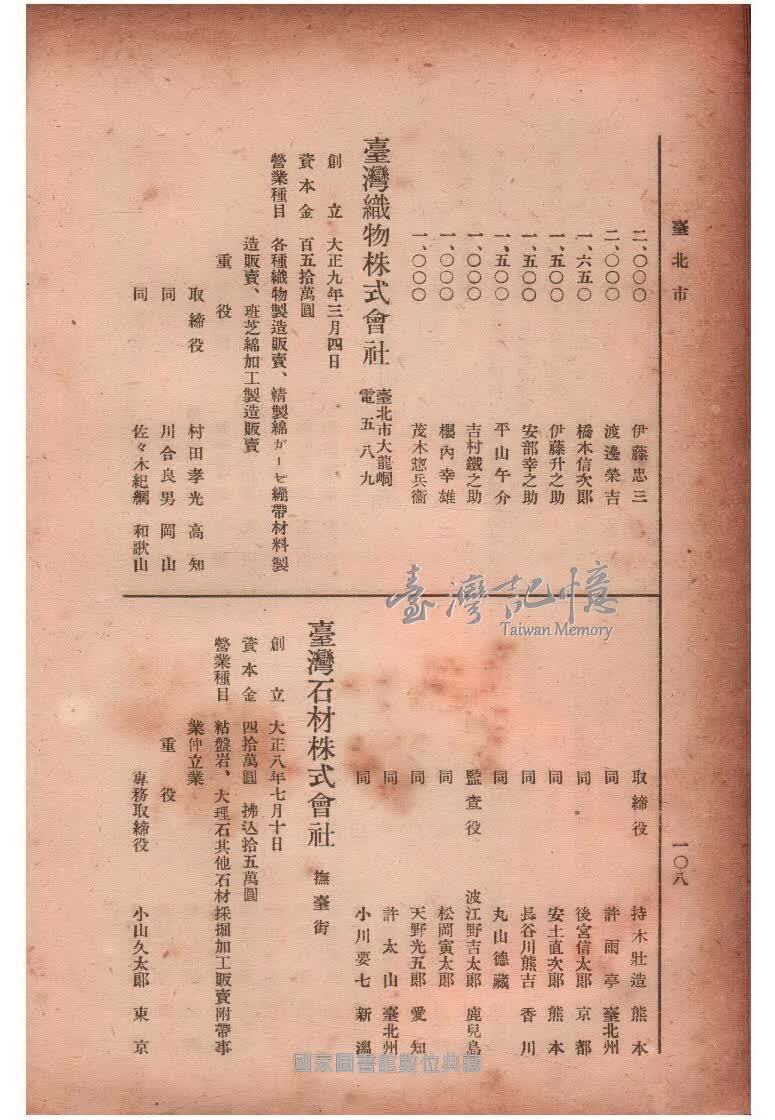 臺北市
一〇八
二、〇〇〇 伊藤忠三
二、〇〇〇 渡邊榮吉
一、六五〇 橋本信次郎
一、五〇〇 伊藤升之助
一、五〇〇 安部幸之助
一、五〇〇 平山午介
一、〇〇〇 吉村鐵之助
一、〇〇〇 櫻內幸雄
一、〇〇〇 茂木惣兵衞
臺灣織物株式會社 臺北市大龍峒 電五八九
創立 大正九年三月四日
資本金 百五拾萬圓
營業種目 各種織物製造販賣、精製綿ガーゼ繃帶材料製
造販賣、班芝綿加工製造販賣
重役
取締役 村田孝光 高知
同 川合良男 岡山
同 佐々木紀綱 和歌山
取締役 持木壯造 熊本
同 許雨亭 臺北州
同 後宮信太郎 京都
同 安土直次郎 熊本
同 長谷川熊吉 香川
同 丸山德藏
監査役 波江野吉太郎 鹿兒島
同 松岡寅太郎
同 天野光五郎 愛知
同 許太山 臺北州
同 小川要七 新潟
臺灣石材株式會社 撫臺街
創立 大正八年七月十日
資本金 四拾萬圓 拂込拾五萬圓
營業種目 粘盤岩、大理石其他石材採掘加工販賣附帶事
業仲立業
重役
專務取締役 小山久太郎 東京
臺灣記憶
Taiwan Memory
國家圖書館數位典藏